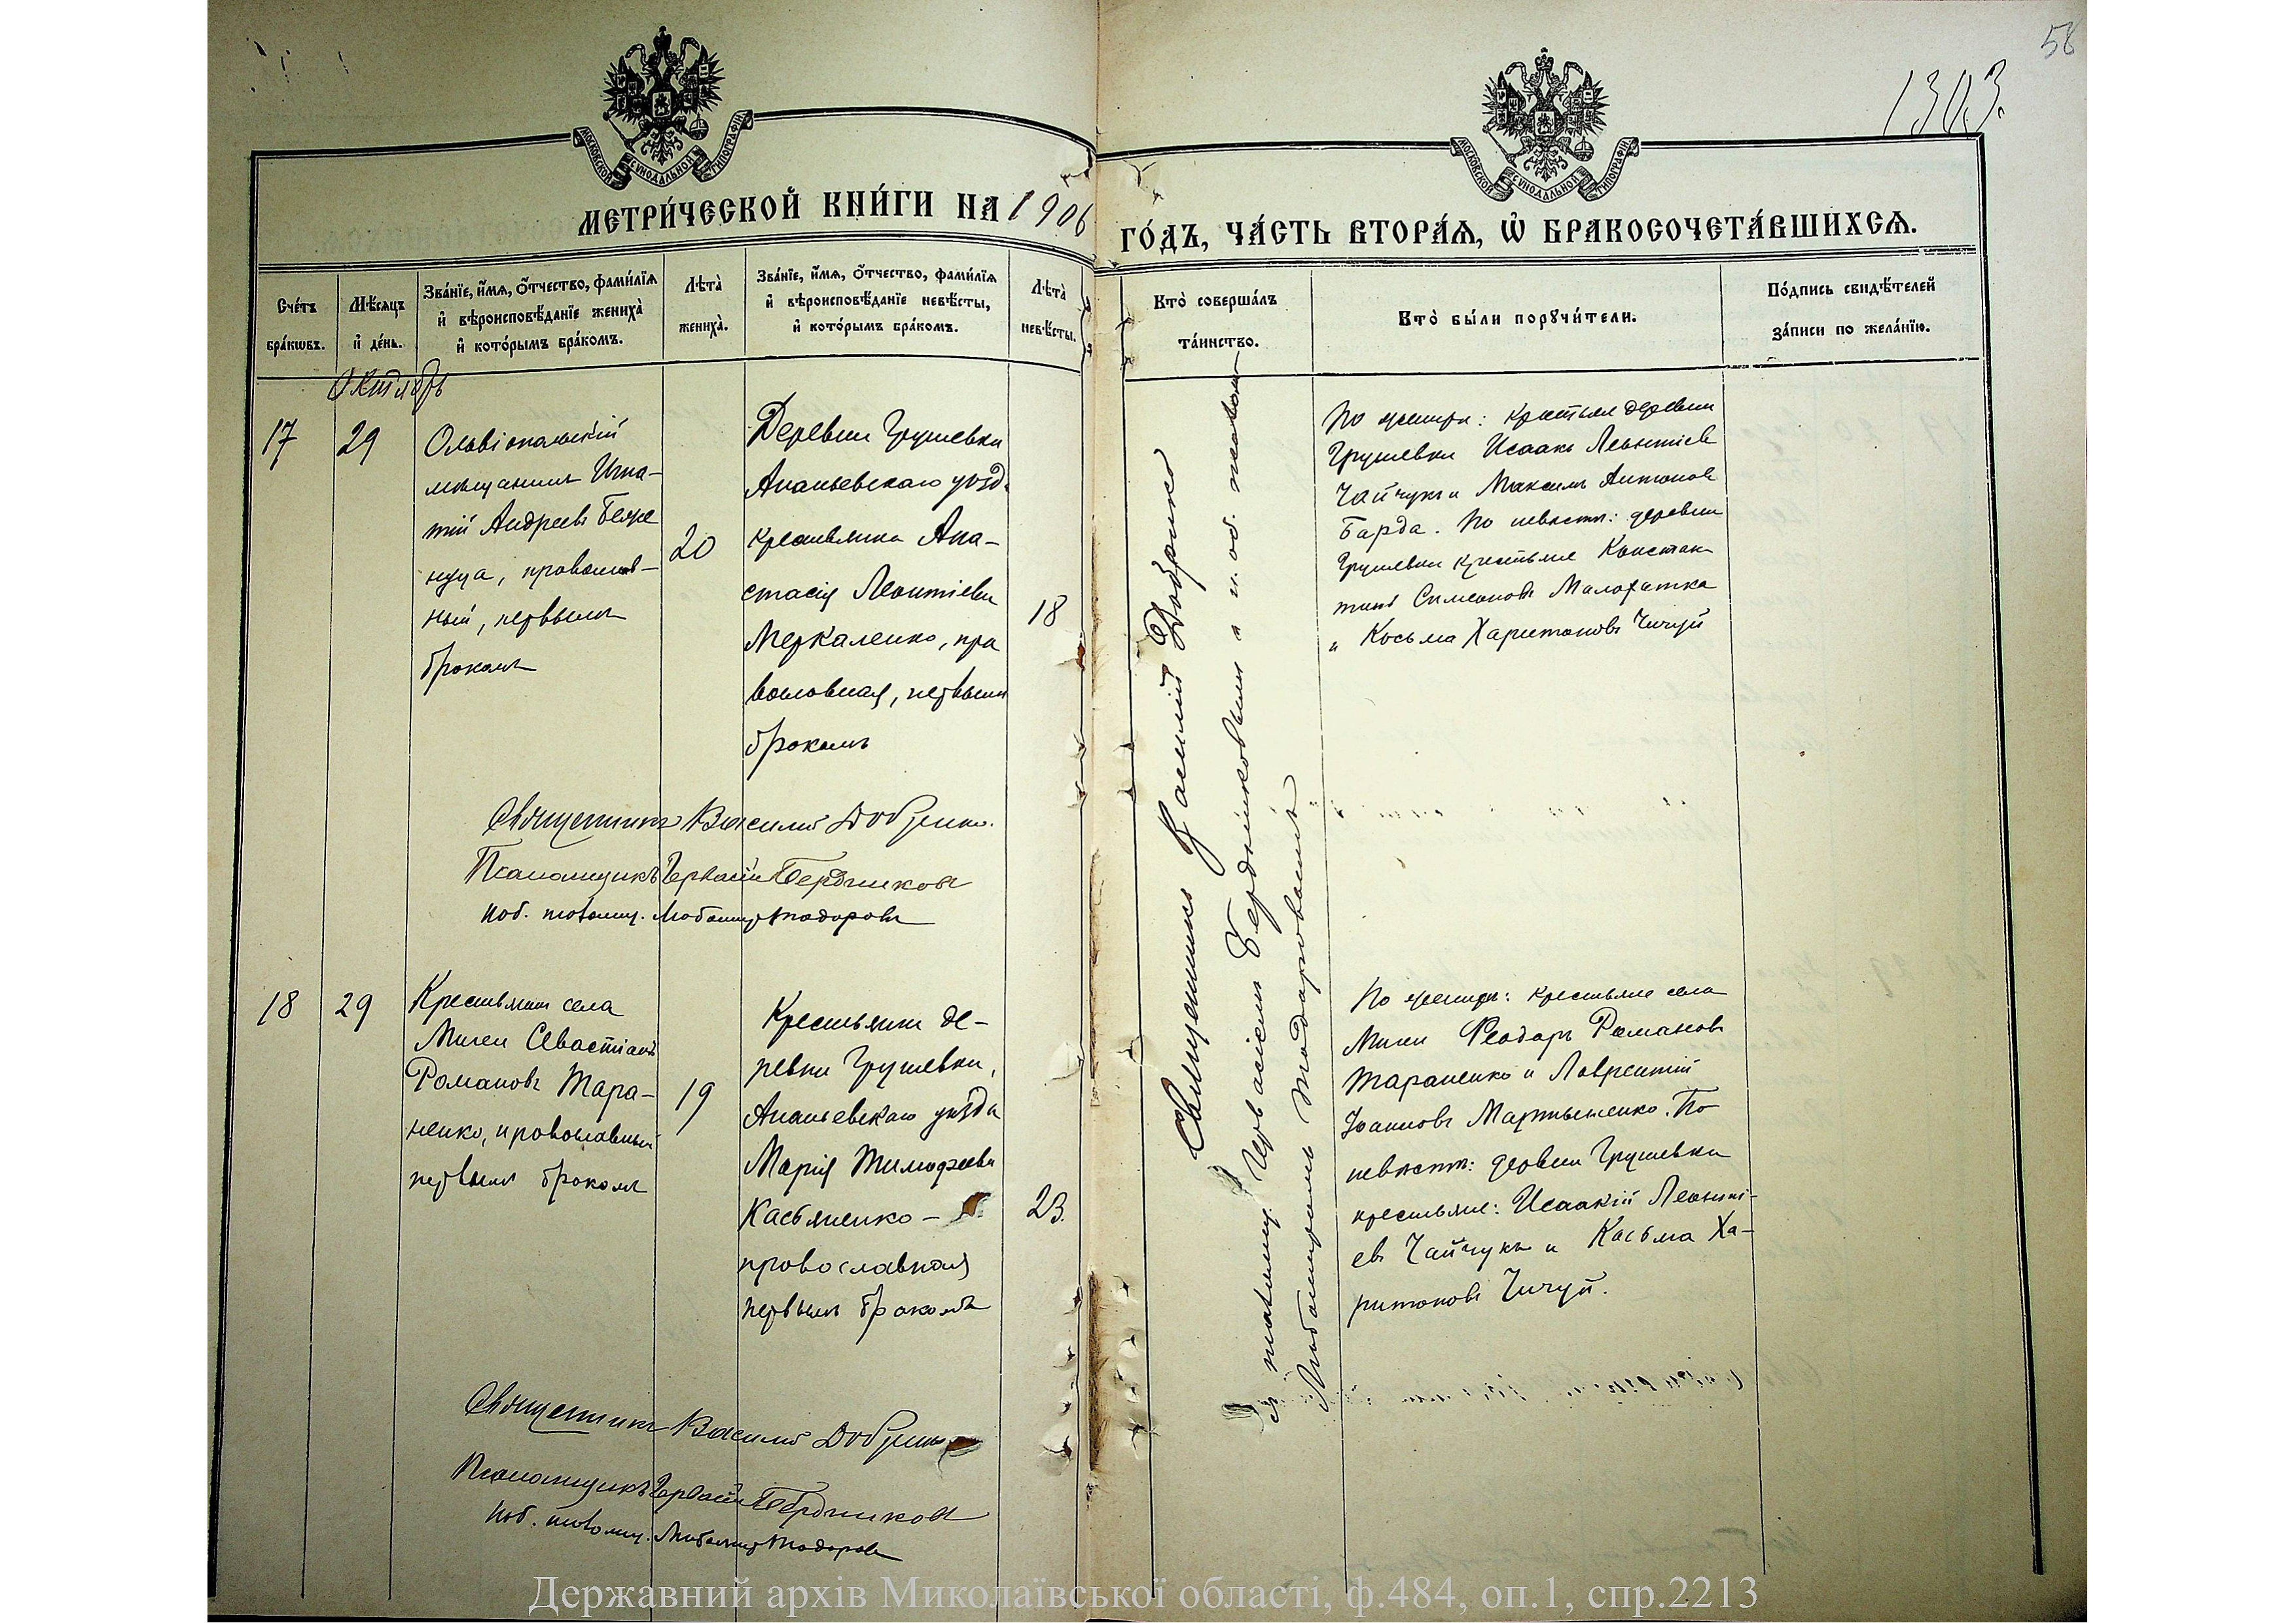 58
1303.
МОСКОВСКОЙ СѴНОДАЛЬНОЙ ТИПОГРАФІИ
МОСКОВСКОЙ СѴНОДАЛЬНОЙ ТИПОГРАФІИ
МЕТРИ́ЧЕСКОЙ КНИ́ГИ НА 1906
ГО́ДЪ, ЧА́СТЬ ВТОРА́Я, Ѡ БРАКОСОЧЕТА́ВШИХСЯ.
Сче́тъ
бра́кωвъ.
Мѣ́сяцъ
и де́нь.
Зва́нїе, и́мя, о́тчество, фами́лїя
и вѣроисповѣ́данїе жениха̀
и кото́рымъ бра́комъ.
Лѣта̀
жениха̀.
Зва́нїе, и́мя, о́тчество, фами́лїя
и вѣроисповѣ́данїе невѣ́сты,
и кото́рымъ бра́комъ.
Лѣта̀
невѣ́сты.
Кто̀ соверша́лъ
та́инство.
Кто̀ бы́ли порꙋчи́тели.
По́дпись свидѣ́телей
за́писи по жела́нїю.
Октябрь
17
29
Ольвіопольскій
мѣщанинъ Игна-
тій Андреевъ Беже
нуца, православ-
ный, первымъ
бракомъ
20
Деревни Грушевки
Ананьевскаго уѣзд.
крестьянка Ана-
стасія Леонтіева
Меркаленко, пра
вославная, первымъ
бракомъ
18
Священникъ Василій Добренко
Псаломщикъ Гервасій Бердниковъ
И об. псаломщ. Любомиръ Тодоровъ
По женихѣ: крестьяне деревни
Грушевки Исаакъ Леонтіевъ
Чайчукъ и Максимъ Антоновъ
Барда. По невѣстѣ: деревни
Грушевки крестьяне Констан
тинъ Симеоновъ Малофатка
и Косьма Харитоновъ Чичуй
Священникъ Василій Добренко
съ псаломщ. Гервасіемъ Бердниковымъ и и. об. псалом
Любомиромъ Тодоровымъ
18
29
Крестьянин села
Мигеи Севастіанъ
Романовъ Тара-
ненко, православный
первымъ бракомъ
19
Крестьянка де-
ревни Грушевки,
Ананьевскаго уѣзда
Марія Тимофеева
Касьяненко –
православная
первымъ бракомъ
23.
По женихѣ: крестьяне села
Мигеи Феодоръ Романовъ
Тараненко и Лаврентій
Іоанновъ Мартыненко. По
невѣстѣ: деревни Грушевки
крестьяне: Исаакій Леонті-
евъ Чайчукъ и Касьма Ха-
ритоновъ Чичуй.
Священникъ Василій Добренко
Псаломщикъ Гервасій Бердниковъ
И об. псаломщ. Любомиръ Тодоровъ
Державний архів Миколаївської області, ф.484, оп.1, спр.2213